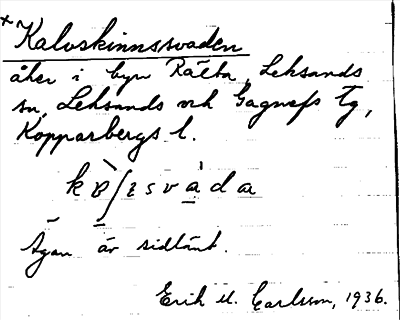 Kalvskinnssvaden
åker i byn Rälta, Leksands
sn, Leksands och Gagnefs Tg,
Kopparbergs l.
Ägan är sidlänt.
Erik M. Carlsson, 1936.